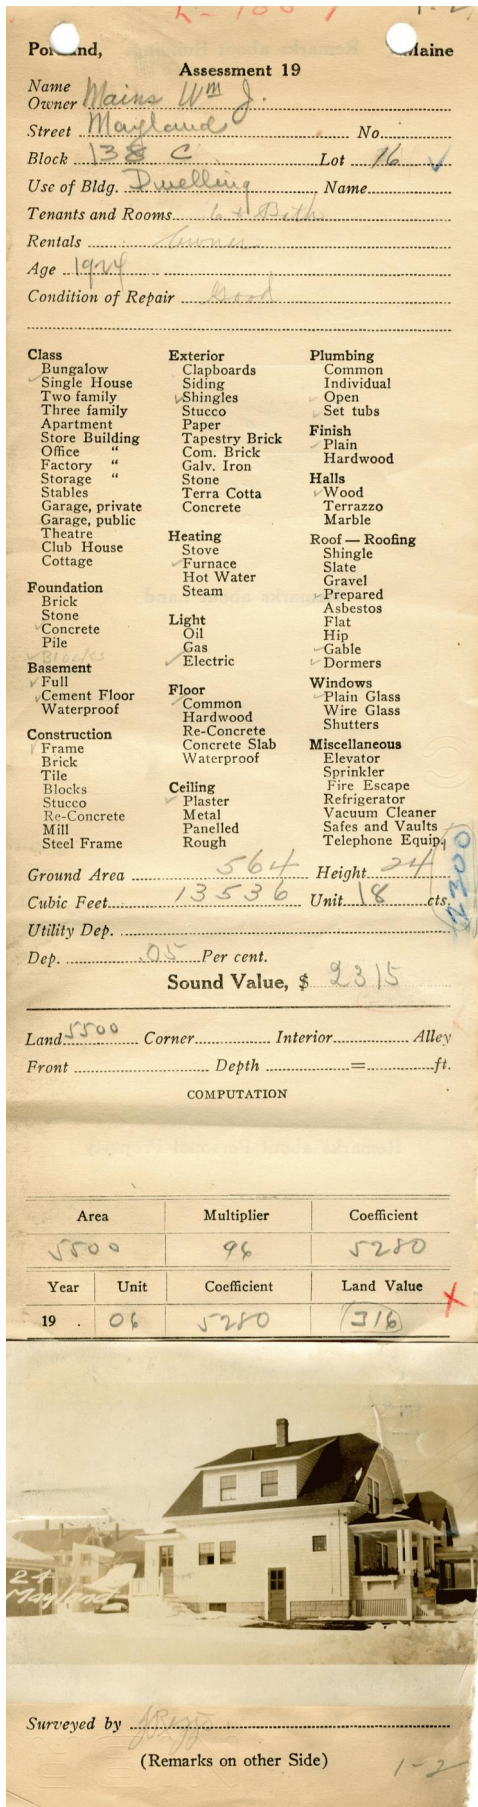 Portland, Maine
Assessment 19
Name
Owner Mains Wm J.
Street Mayland No.
Block 138 C Lot 16
Use of Bldg. Dwelling Name
Tenants and Rooms 6 & Bath
Rentals Owner
Age 1924
Condition of Repair Good
Class
Bungalow
Single House
Two family
Three family
Apartment
Store Building
Office "
Factory "
Storage "
Stables
Garage, private
Garage, public
Theatre
Club House
Cottage
Foundation
Brick
Stone
Concrete
Pile
Blocks
Basement
Full
Cement Floor
Waterproof
Construction
Frame
Brick
Tile
Blocks
Stucco
Re-Concrete
Mill
Steel Frame
Exterior
Clapboards
Siding
Shingles
Stucco
Paper
Tapestry Brick
Com. Brick
Galv. Iron
Stone
Terra Cotta
Concrete
Heating
Stove
Furnace
Hot Water
Steam
Light
Oil
Gas
Electric
Floor
Common
Hardwood
Re-Concrete
Concrete Slab
Waterproof
Ceiling
Plaster
Metal
Panelled
Rough
Plumbing
Common
Individual
Open
Set tubs
Finish
Plain
Hardwood
Halls
Wood
Terrazzo
Marble
Roof — Roofing
Shingle
Slate
Gravel
Prepared
Asbestos
Flat
Hip
Gable
Dormers
Windows
Plain Glass
Wire Glass
Shutters
Miscellaneous
Elevator
Sprinkler
Fire Escape
Refrigerator
Vacuum Cleaner
Safes and Vaults
Telephone Equip.
2300
Ground Area 564 Height 24
Cubic Feet 13536 Unit 18 cts.
Utility Dep.
Dep. .05 Per cent.
Sound Value, $ 2315
Land 5500 Corner Interior Alley
Front Depth = ft.
COMPUTATION
Area Multiplier Coefficient
5500 96 5280
Year Unit Coefficient Land Value
19 . 06 5280 316
24
Mayland
Surveyed by
(Remarks on other Side)
1-2